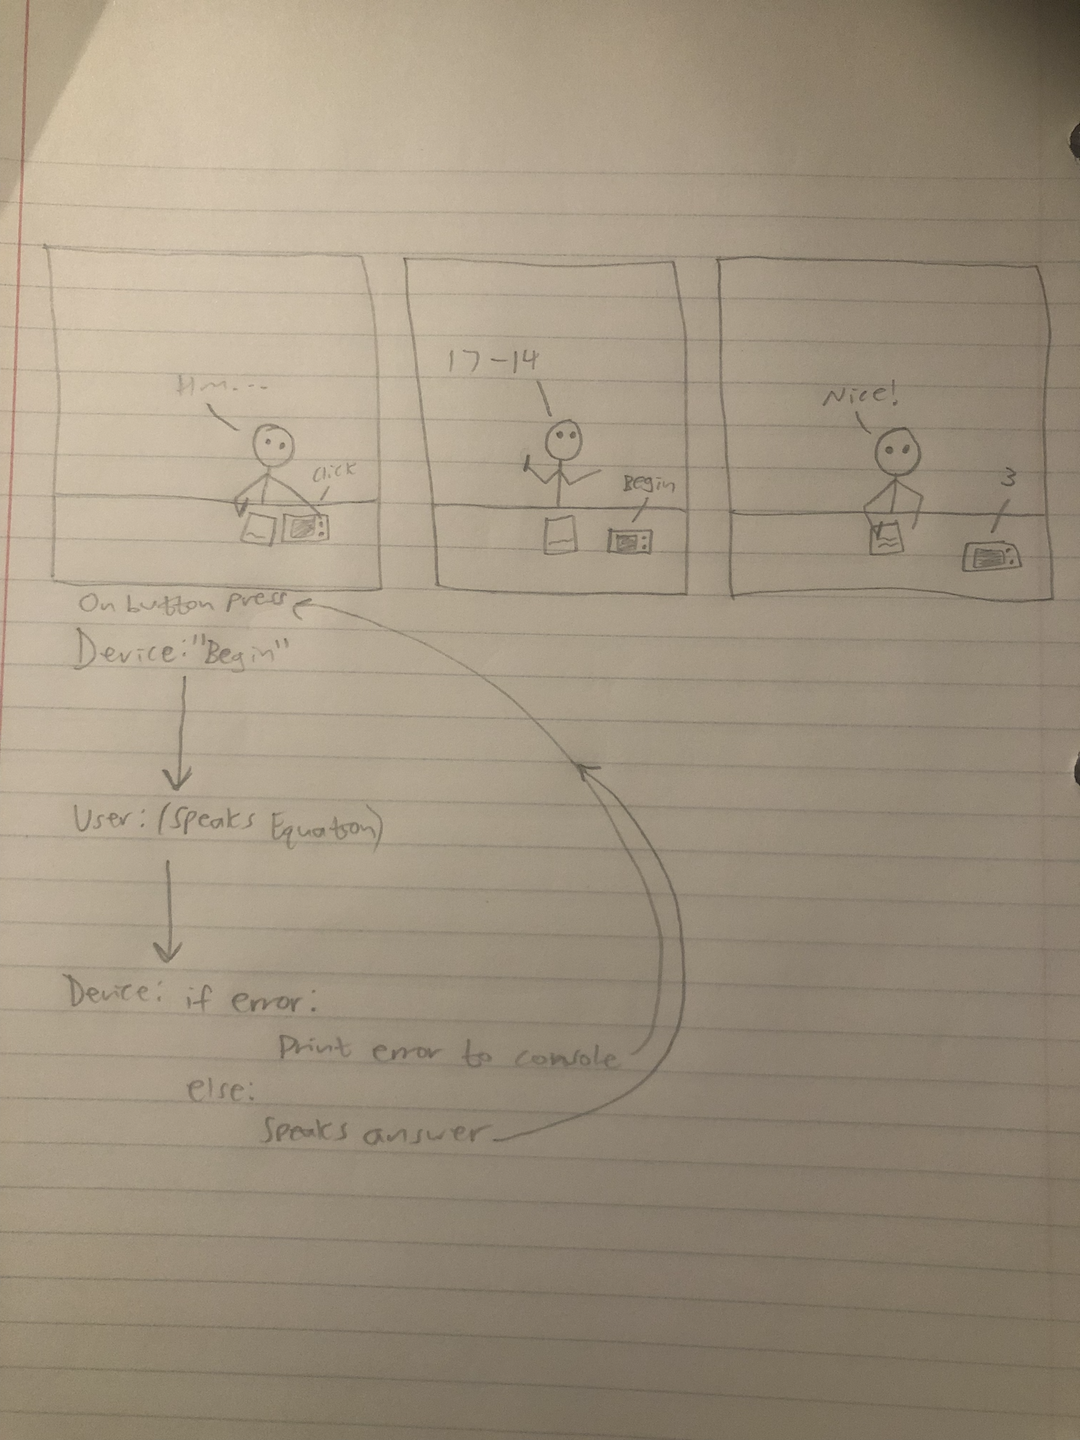 Hm...
click
17-14
Begin
Nice!
3
On button press
Device: "Begin"
User: (Speaks Equation)
Device: if error:
Print error to console
else:
Speaks answer